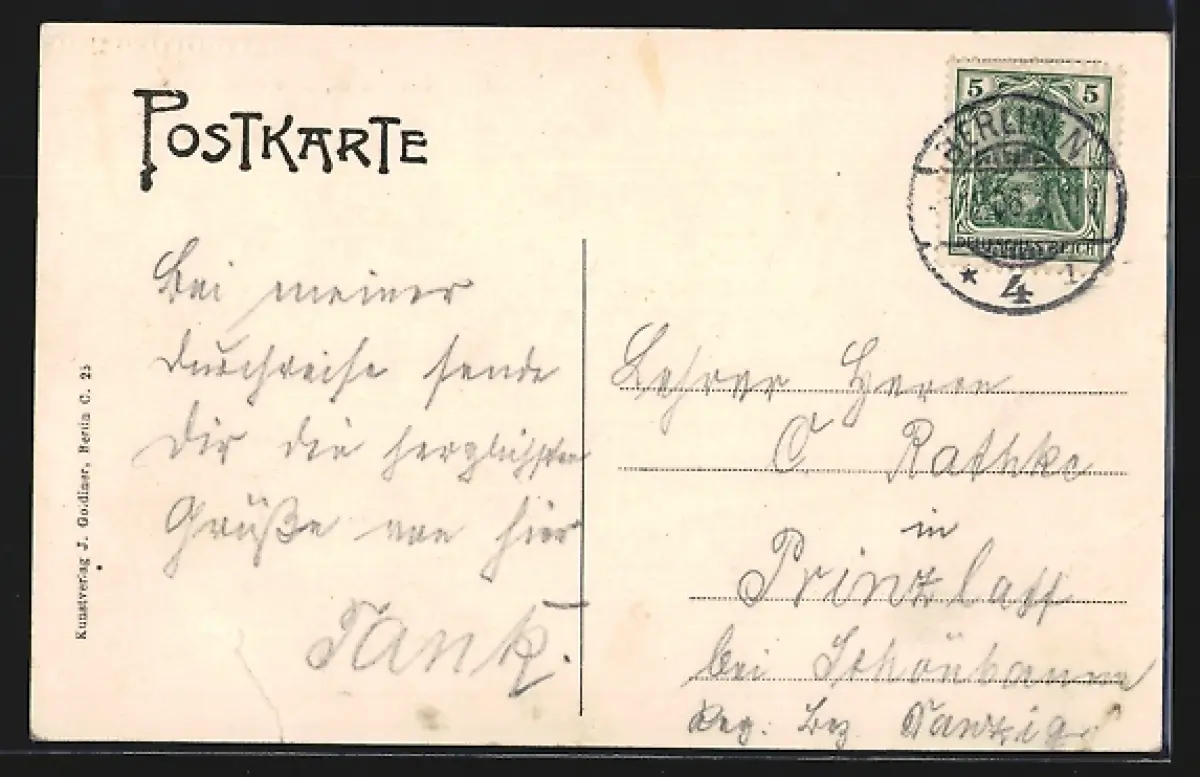 POSTKARTE
5 5
BERLIN N
06
DEUTSCHES REICH
* 4 1.
Bei meiner
Durchreise sende
Dir die herzlichsten
Grüße von hier
Tank.
Lehrer Herrn
C Rathke
in
Prinzlaff
bei Schönbaum
Reg. Bez Danzig
Kunstverlag J. Goldiner, Berlin C. 25